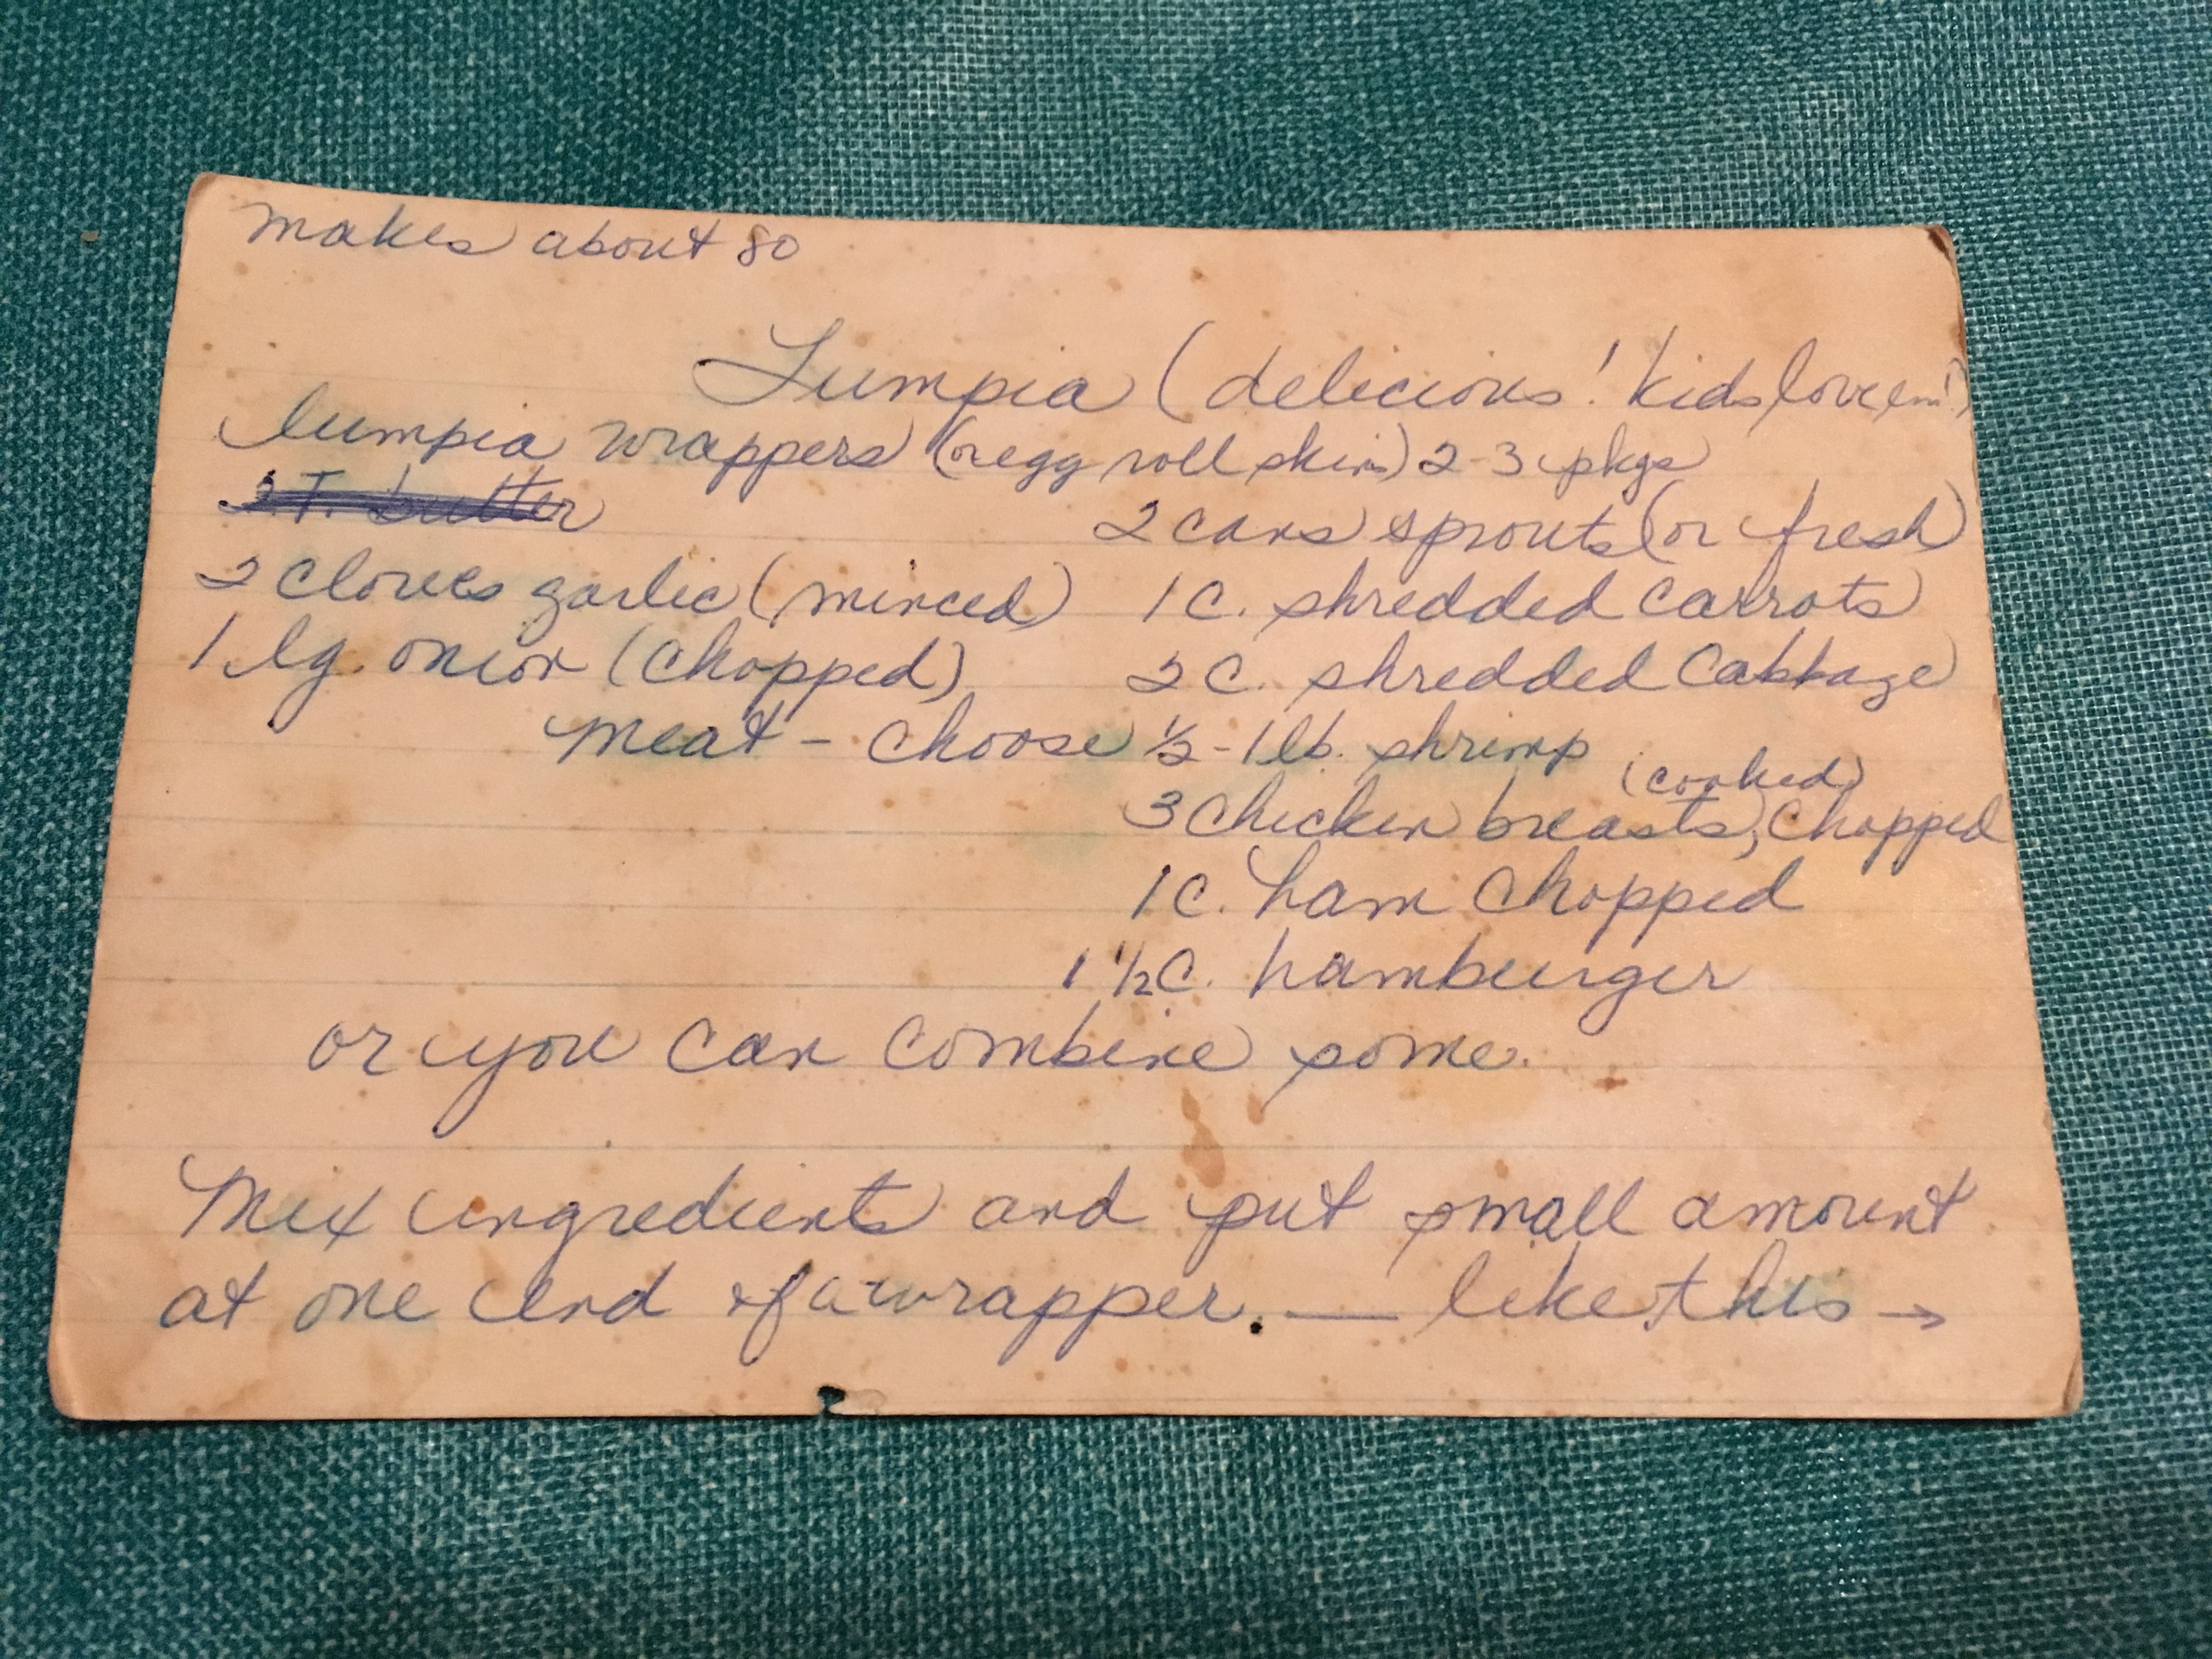 makes about 80
Lumpia (delicious! kids love em!)
lumpia wrappers (or egg roll skins) 2-3 pkgs
2 T. butter
2 cans sprouts (or fresh)
2 cloves garlic (minced) 1 C. shredded carrots
1 lg. onion (chopped) 2 C. shredded cabbage
meat - choose 1/2 - 1 lb. shrimp
(cooked)
3 chicken breasts, chopped
1 C. ham chopped
1 1/2 C. hamburger
or you can combine some.
Mix ingredients and put small amount
at one end of a wrapper. — like this →